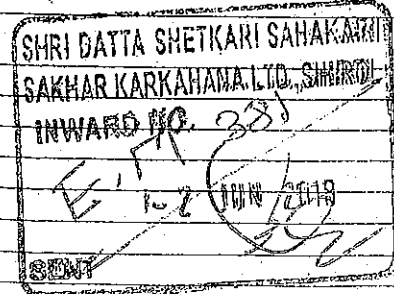 SHRI DATTA SHETKARI SAHAKARI
SAKHAR KARKAHANA LTD., SHIROL
INWARD NO. 381
JUN 2019
SENT